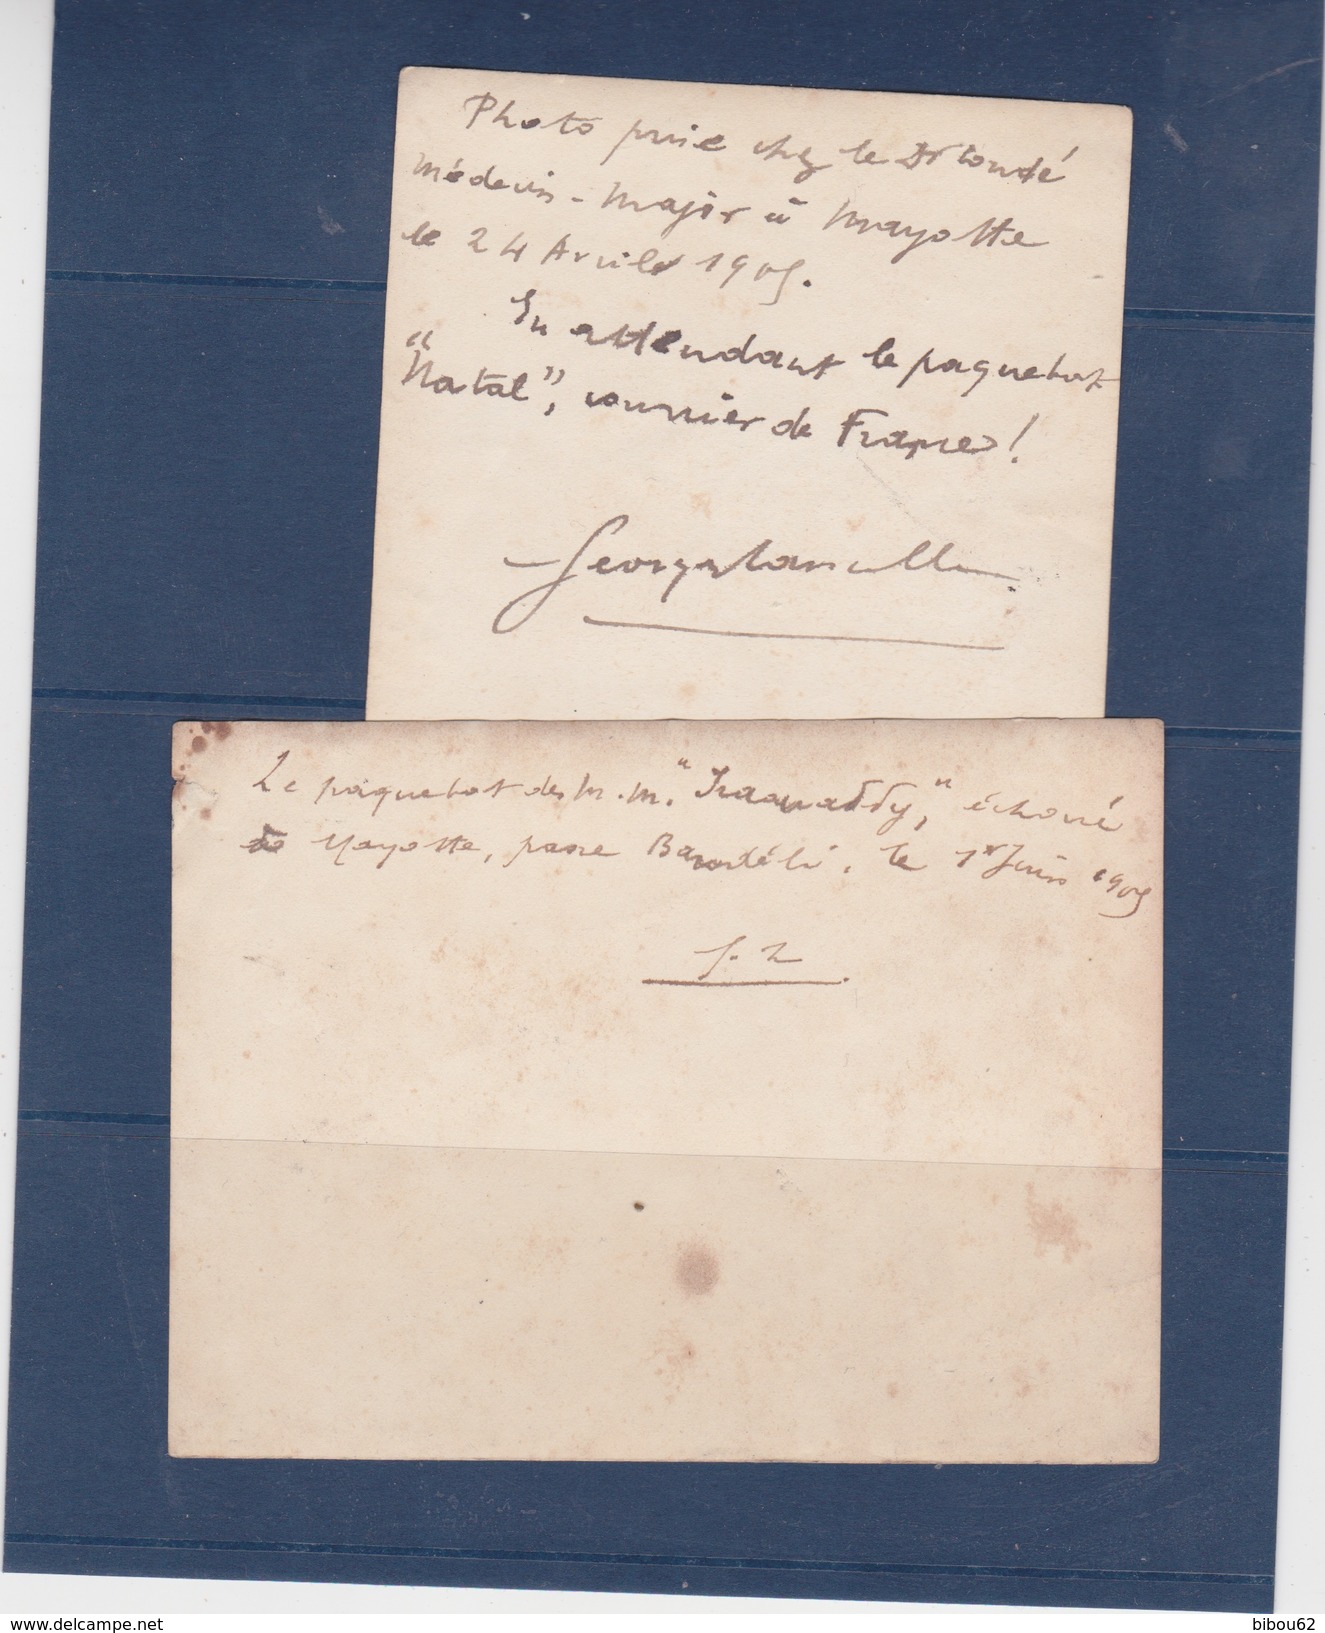 Photo prise chez le Dr Condé
Médecin-Major à Mayotte
le 24 Avril 1905.
En attendant le paquebot
"Natal", courrier de France!
Le paquebot des M.M. "Iraouaddy," échoué
Mayotte, passe Bandéli, le 1er Juin 1905
www.delcampe.net
bibou62